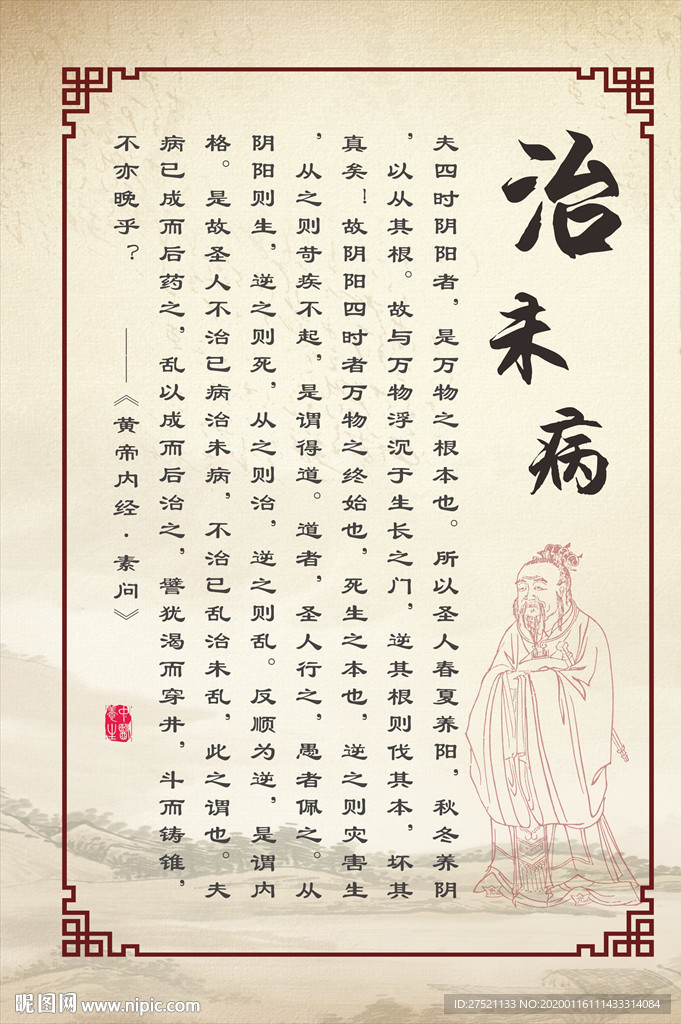 治未病
夫四时阴阳者，是万物之根本也。所以圣人春夏养阳，秋冬养阴
，以从其根。故与万物浮沉于生长之门，逆其根则伐其本，坏其
真矣！故阴阳四时者万物之终始也，死生之本也，逆之则灾害生
，从之则苛疾不起，是谓得道。道者，圣人行之，愚者佩之。从
阴阳则生，逆之则死，从之则治，逆之则乱。反顺为逆，是谓内
格。是故圣人不治已病治未病，不治已乱治未乱，此之谓也。夫
病已成而后药之，乱以成而后治之，譬犹渴而穿井，斗而铸锥，
不亦晚乎？ ——《黄帝内经·素问》
昵图网 www.nipic.com
ID:27521133 NO:20200116111433314084